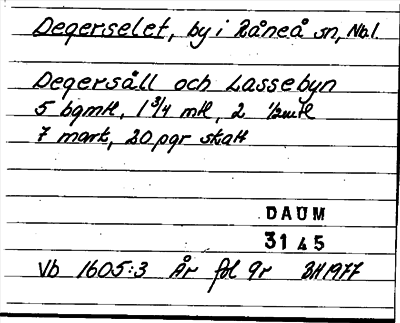 Degerselet, by i Råneå sn, Nbl.
Degersåll och Lassebyn
5 bgmtl, 1 3/4 mtl, 2 1/2mtl
7 mark, 20 pgr skatt
DAUM
3145
Vb 1605:3 År fol 9r BH1977